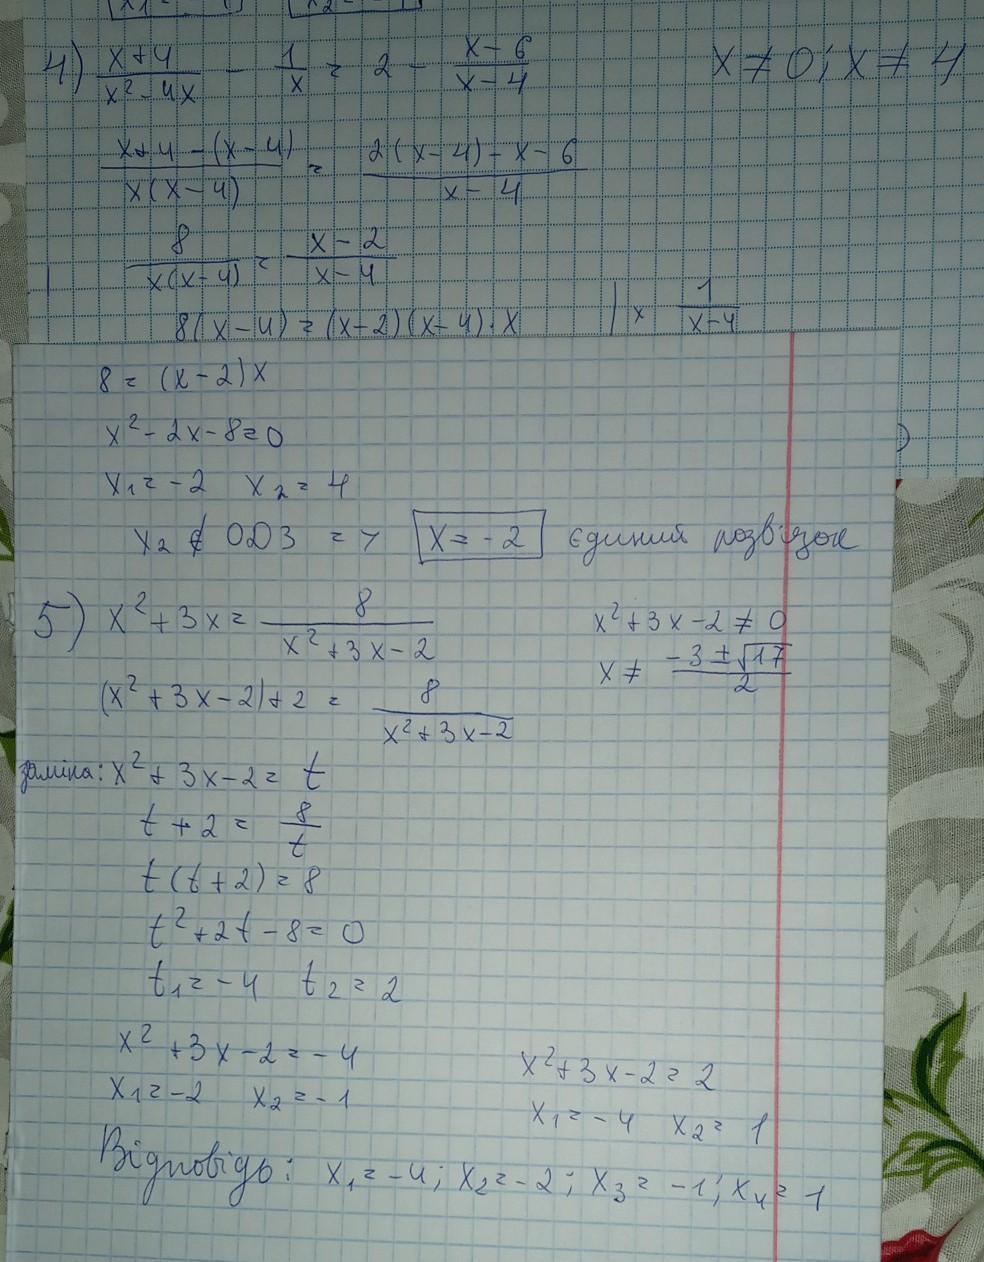 4) (x+4)/(x²-4x) - 1/x = 2 - (x-6)/(x-4)    x ≠ 0; x ≠ 4
(x+4-(x-4))/(x(x-4)) = (2(x-4)-x-6)/(x-4)
8/(x(x-4)) = (x-2)/(x-4)
8(x-4) = (x-2)(x-4)·x    | × 1/(x-4)
8 = (x-2)x
x²-2x-8=0
x₁=-2  x₂=4
x₂ ∉ ОДЗ => x=-2 єдиний розв'язок
5) x²+3x = 8/(x²+3x-2)    x²+3x-2 ≠ 0
x ≠ (-3±√17)/2
(x²+3x-2)+2 = 8/(x²+3x-2)
заміна: x²+3x-2 = t
t+2 = 8/t
t(t+2)=8
t²+2t-8=0
t₁=-4  t₂=2
x²+3x-2=-4    x²+3x-2=2
x₁=-2  x₂=-1    x₁=-4  x₂=1
Відповідь: x₁=-4; x₂=-2; x₃=-1; x₄=1